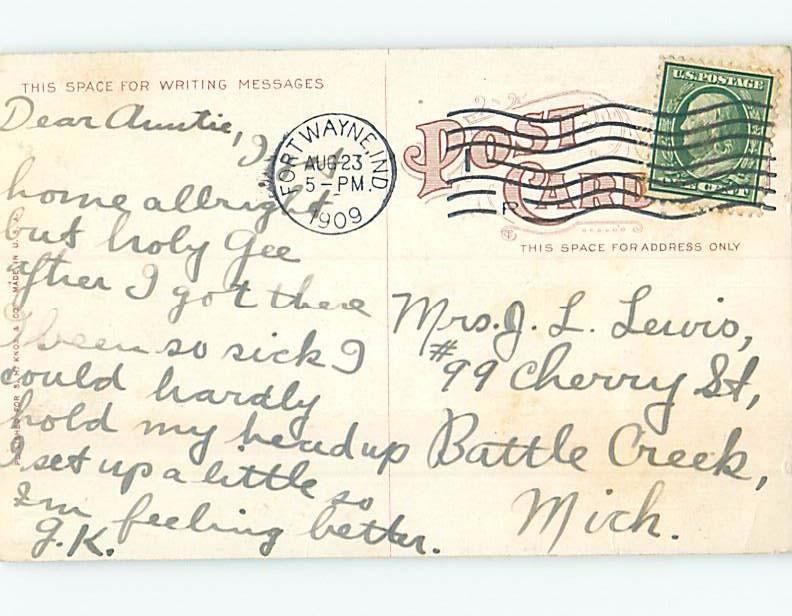 THIS SPACE FOR WRITING MESSAGES
Dear Auntie, I
home allright
but holy Gee
after I got there
I been so sick I
could hardly
hold my head up
I set up a little so
Im feeling better.
G.K.
FORT WAYNE, IND.
AUG 23
5-PM
1909
POST CARD
U.S. POSTAGE
ONE CENT
THIS SPACE FOR ADDRESS ONLY
Mrs. J. L. Lewis,
#99 Cherry St,
Battle Creek,
Mich.
MADE IN U.S.A.